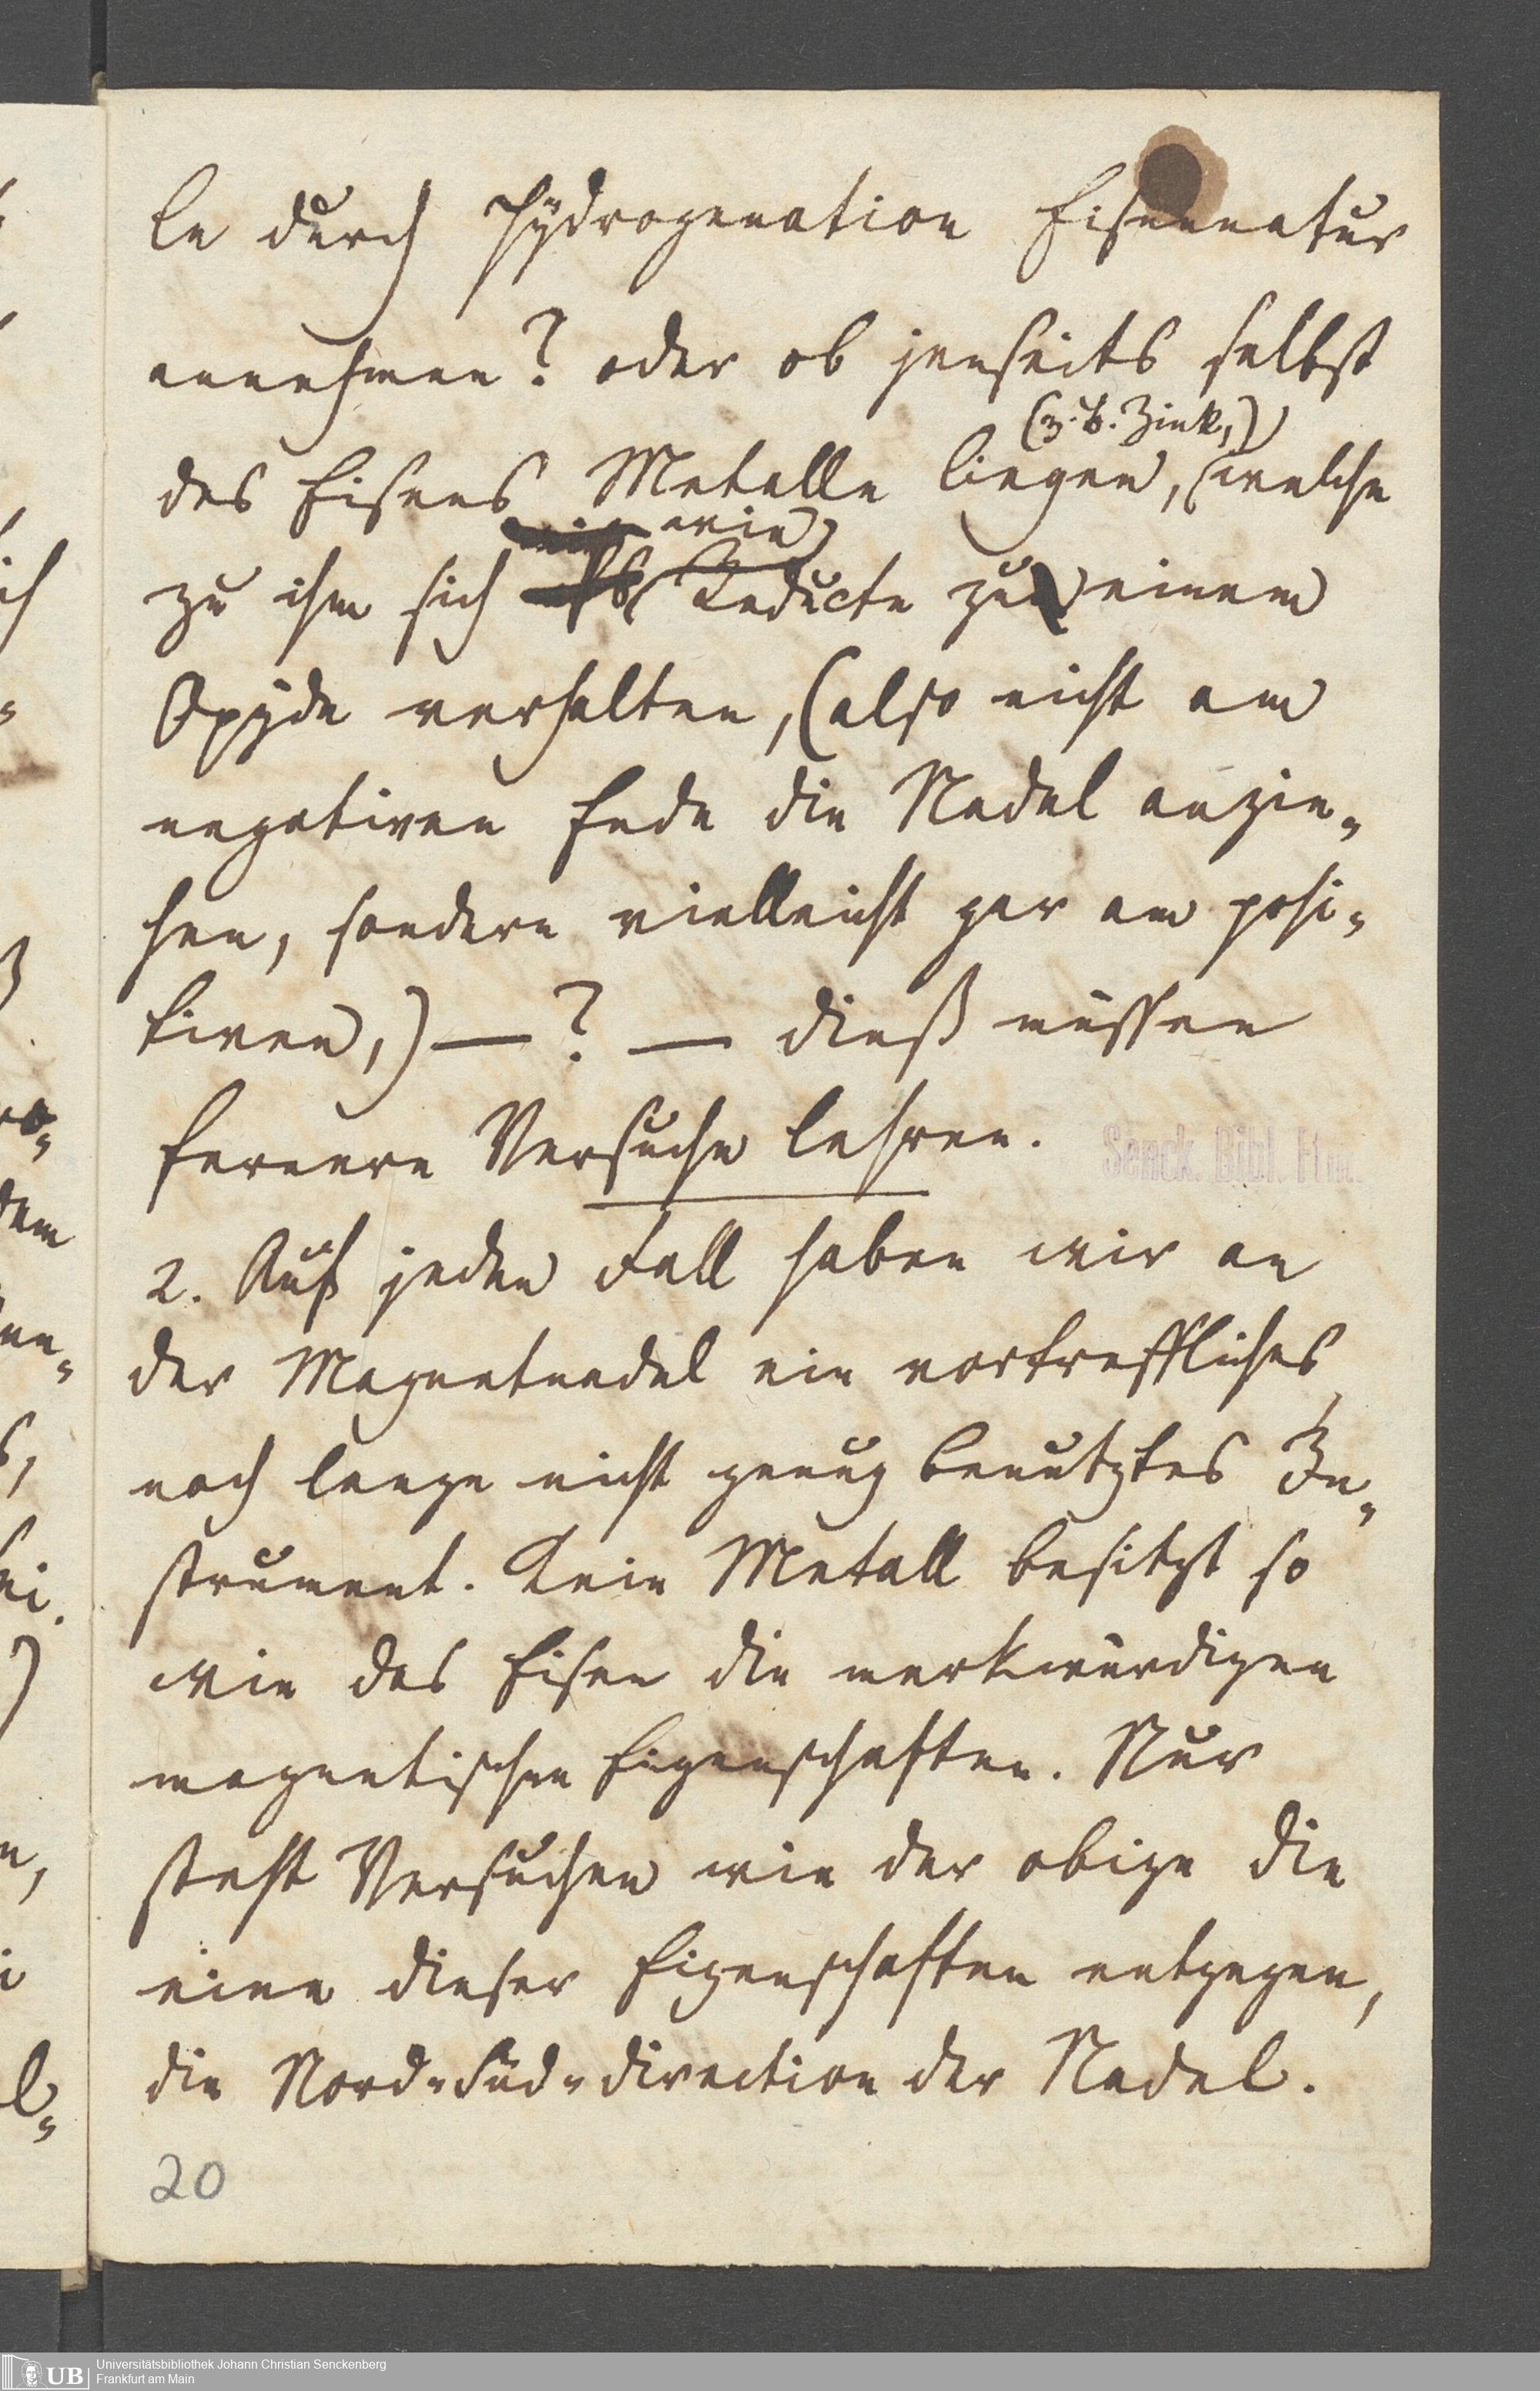 le durch Hydrogenation Eisennatur
annehmen? oder ob jenseits selbst
(z.B. Zink,)
des Eisens Metalle liegen, welche
wie
zu ihm sich Educte zu einem
Oxyde verhalten, (also nicht am
negativen Ende die Nadel anzie-
hen, sondern vielleicht gar am posi-
tiven,) — ? — dieß müssen
fernere Versuche lehren.
Senck. Bibl. Ffm.
2. Auf jeden Fall haben wir an
der Magnetnadel ein vortreffliches
noch lange nicht genug benutztes In-
strument. Kein Metall besitzt so
wie das Eisen die merkwürdigen
magnetischen Eigenschaften. Nur
steht Versuchen wie der obige die
eine dieser Eigenschaften entgegen,
die Nord-Süd-direction der Nadel.
20
UB
Universitätsbibliothek Johann Christian Senckenberg
Frankfurt am Main